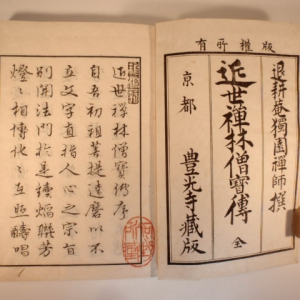 版權所有
退耕庵獨園禪師撰
近世禪林僧寶傳 全
京都 豊光寺藏版
近世禪林僧寶傳序
自吾初祖菩提達磨以不
立文字直指人心之宗旨
別開法門於是續焰聯芳
燈〻相傳化〻互照疇唱